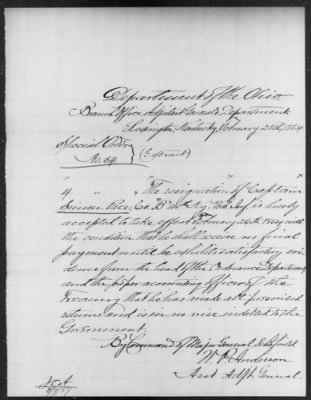 Department of the Ohio
Branch Office Adjutant General's Department
Lexington Kentucky February 25th 1864
Special Orders
No. 54. (Extract)
4 " " "The resignation" of Captain
Price, Co. Ky Vols Inf is hereby
accepted to take effect February 26th 1864 with
the condition that he shall receive no final
payment until he exhibits satisfactory evi
dence from the head of the Ordnance Department
and the proper accounting Officers of the
Treasury that he has made all prescribed
returns and is in no wise indebted to the
Government.
By Command of Major General Schofield
W. P. Anderson
Asst Adjt General.